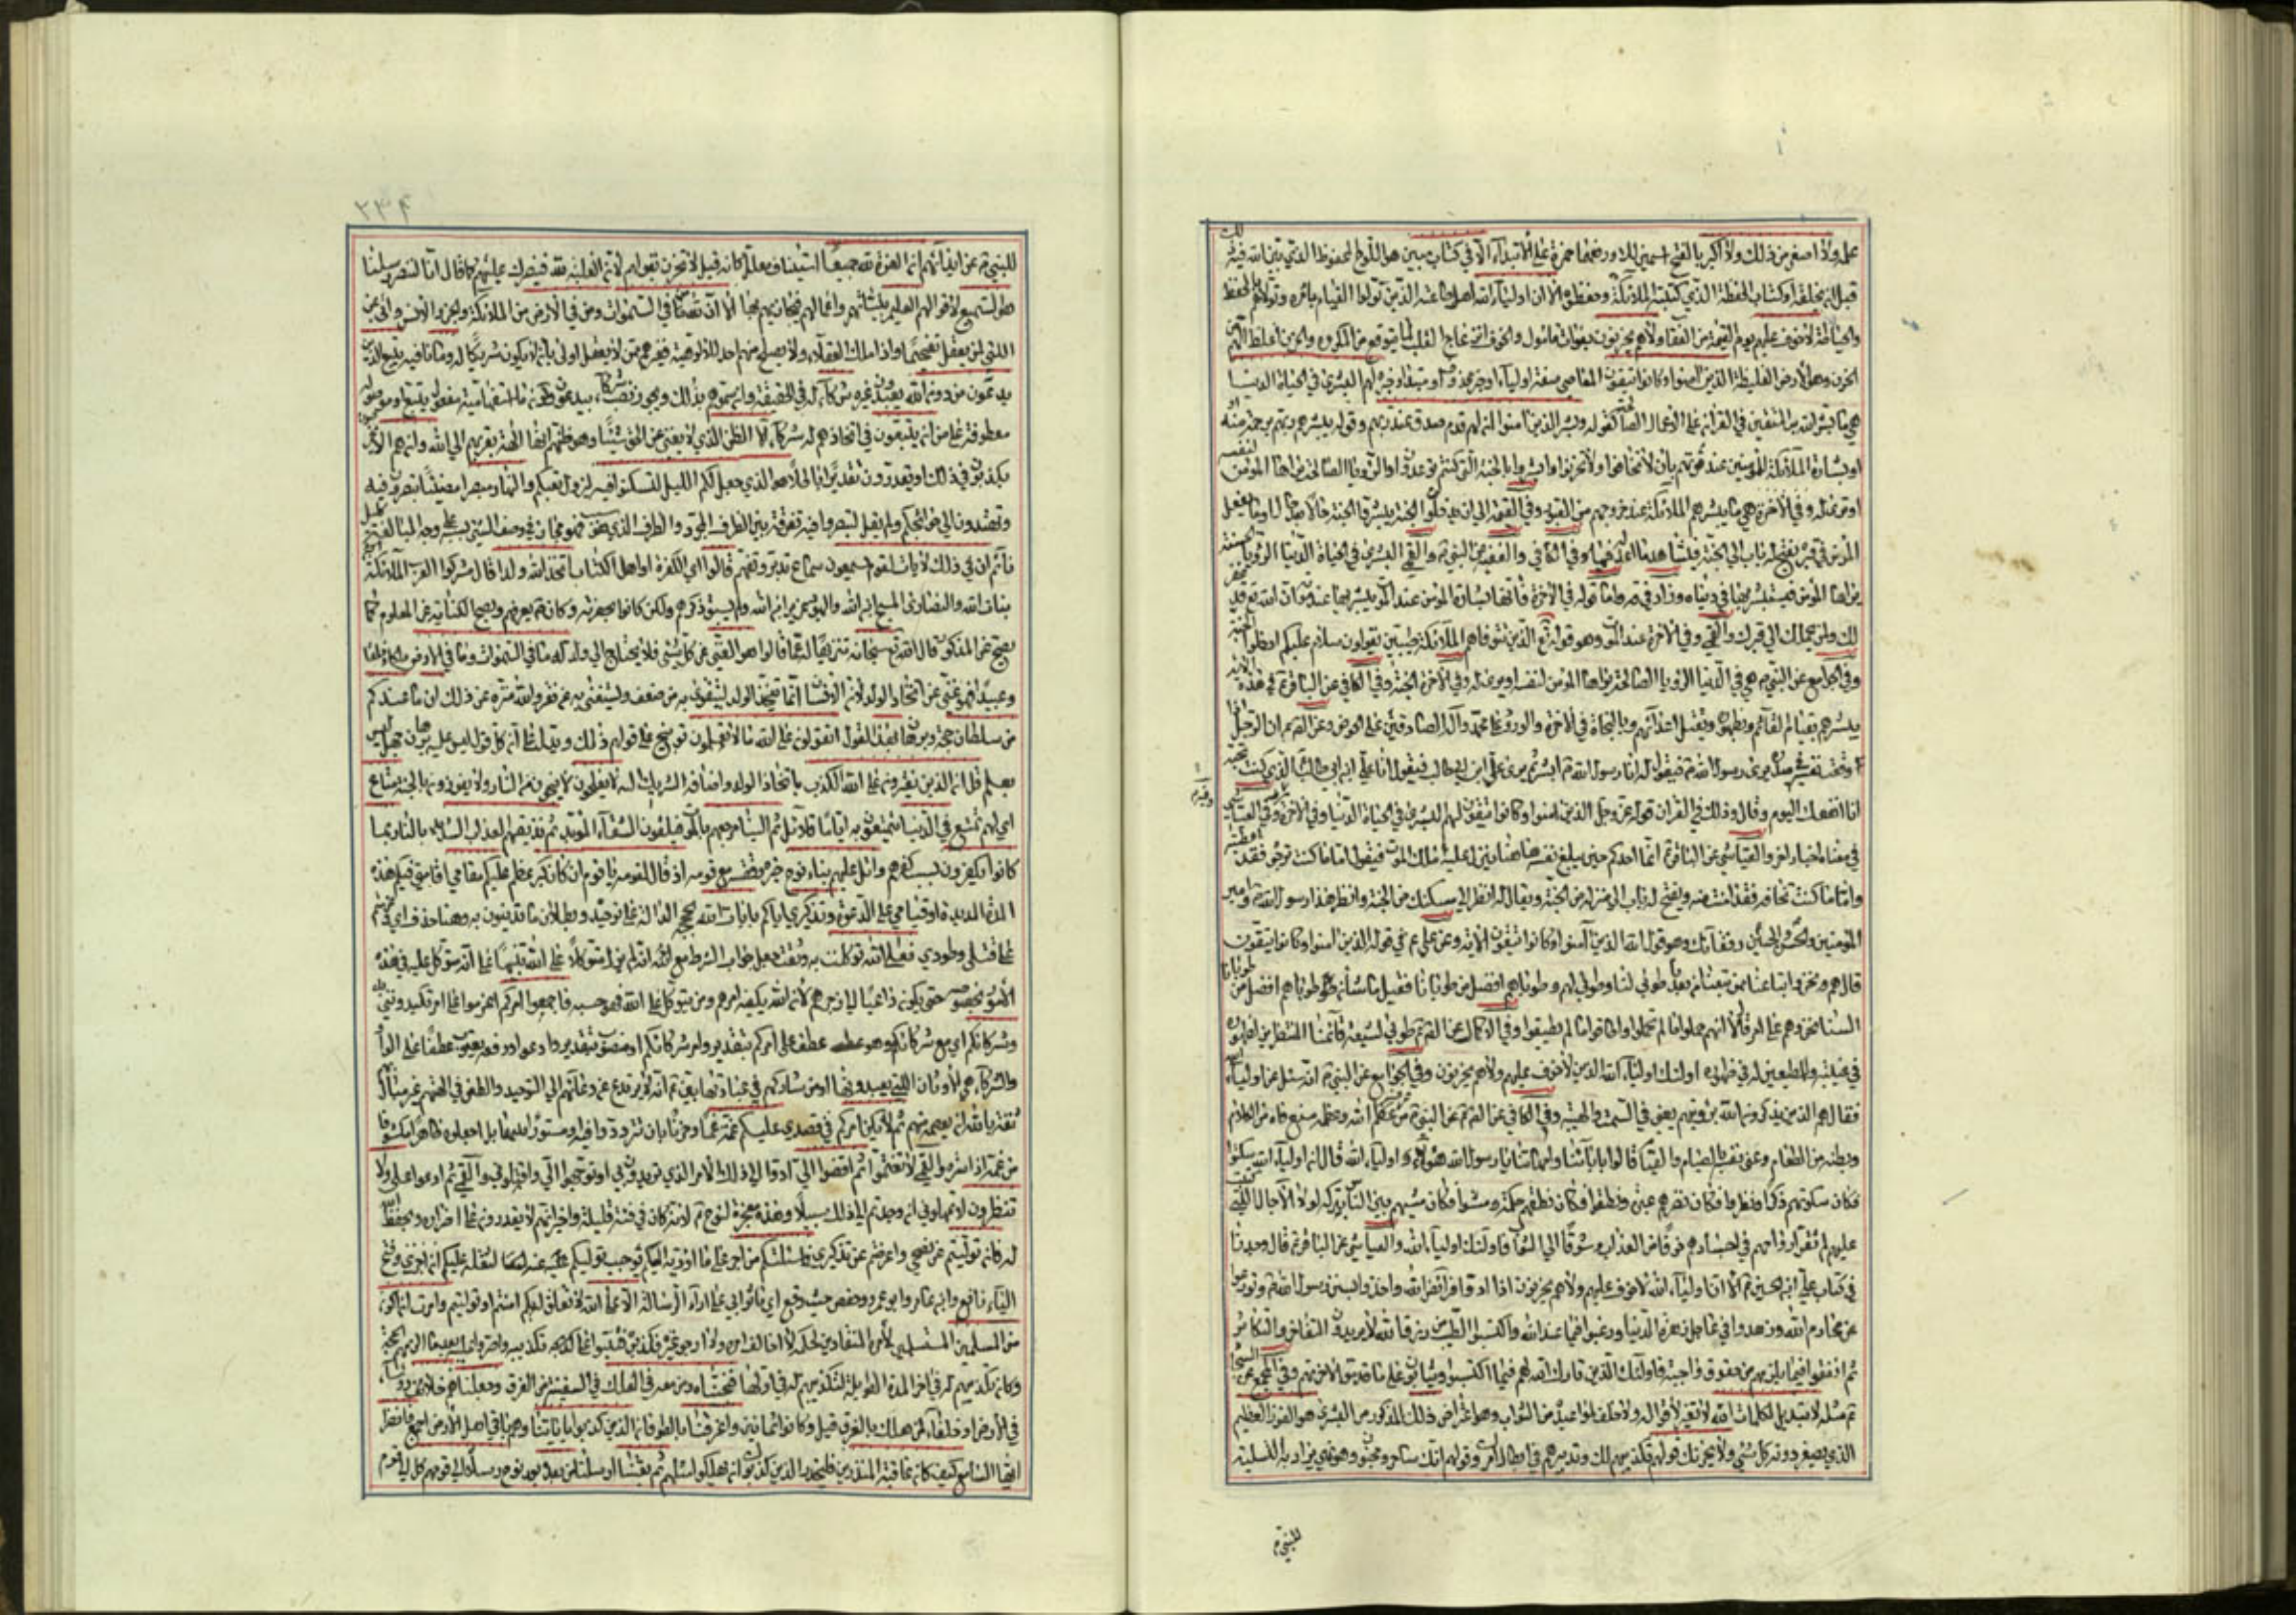 عمله ولا اصغر من ذلك ولا اكبر بالفتح اسمين للا ورفعهما حمزة على الابتداء الا في كتاب مبين هو اللوح المحفوظ الذي بين الله فيه
قبل ان يخلقه او كتاب الحفظة الذي كتبته الملائكة وحفظوه الا ان اولياء الله اهل طاعته الذين تولوا القيام بامره وتولاهم بالحفظ
والحياطة لا خوف عليهم يوم القيمة من العقاب ولا هم يحزنون بفوات مأمول والحزن اغلظ الهم
الحزن وهو الارض الغليظة الذين امنوا وكانوا يتقون المعاصي صفة اولياء او خبر محذوف او مبتدأ وخبره لهم البشرى في الحياة الدنيا
هي ما بشر الله به المتقين في القرآن على الاعمال الصالحة كقوله وبشر الذين امنوا ان لهم قدم صدق عند ربهم وقوله يبشرهم ربهم برحمة منه
او بشارة الملائكة للمؤمنين عند موتهم بان لا تخافوا ولا تحزنوا وابشروا بالجنة التي كنتم توعدون او الرؤيا الصالحة يراها المؤمن لنفسه
او ترى له وفي الاخرة هي ما يبشرهم الملائكة عند خروجهم من القبور وفي القيمة الى ان يدخلوا الجنة يبشرونهم بها حالا بعد حال
المؤمن في قبره يفتح له باب الى الجنة يشاهد ما اعد له فيها وفي الكافي والفقيه عن النبي والقمي البشرى في الحياة الدنيا الرؤيا الحسنة
يراها المؤمن فيبشر بها في دنياه وزاد في قوله في الاخرة فانها بشارة المؤمن عند الموت يبشر بها عند موته ان الله قد غفر
لك ولمن يحملك الى قبرك والقمي وفي الاخرة عند الموت وهو قوله تع الذين تتوفاهم الملائكة طيبين يقولون سلام عليكم ادخلوا الجنة
وفي الجامع عن النبي هي في الدنيا الرؤيا الصالحة يراها المؤمن لنفسه او يرى له وفي الاخرة الجنة وفي الكافي عن الباقر في هذه الاية
يبشرهم بقيام القائم وبظهوره وبقتل اعدائهم وبالنجاة في الاخرة والورود على محمد وآله الصادقين على الحوض وعن الصم ان الرجل اذا
وقعت نفسه في صدره يرى رسول الله فيقول له انا رسول الله ابشر ثم يرى علي ابن ابي طالب فيقول انا علي ابن ابي طالب الذي كنت تحبه
انا انفعك اليوم وقال وذلك في القرآن قوله عز وجل الذين امنوا وكانوا يتقون لهم البشرى في الحياة الدنيا وفي الاخرة وفي العياشي
في معناه اخبار اخر والعياشي عن الباقر انما احدكم حين يبلغ نفسه ههنا ينزل عليه ملك الموت فيقول اما ما كنت ترجو فقد اعطيته
واما ما كنت تخافه فقد امنت منه ويفتح له باب الى منزله من الجنة ويقال له انظر الى مسكنك من الجنة وانظر هذا رسول الله وامير
المؤمنين والحسن والحسين رفقاؤك وهو قول الله الذين آمنوا وكانوا يتقون الاية وعن علي ع في قوله الذين امنوا وكانوا يتقون
قال هم نحن واتباعنا ممن تبعنا من بعدنا طوبى لنا وطوبى لهم وطوباهم افضل من طوبانا فقيل ما شأن طوباهم افضل من طوبانا
السنا نحن وهم على امر قال لا انهم حملوا ما لم تحملوا واطاقوا ما لم تطيقوا وفي الاكمال عن الصم طوبى لشيعة قائمنا المنتظرين لظهوره
في غيبته والمطيعين له في ظهوره اولئك اولياء الله الذين لا خوف عليهم ولا هم يحزنون وفي الجوامع عن النبي انه سئل عن اولياء الله
فقال هم الذين يذكرون الله برؤيتهم يعني في السمت والهيئة وفي الكافي عن الصم عن النبي من عرف الله وعظمه منع فاه من الكلام
وبطنه من الطعام وعنى نفسه بالصيام والقيام قالوا بابائنا وامهاتنا يا رسول الله هؤلاء اولياء الله قال ان اولياء الله سكتوا
فكان سكوتهم ذكرا ونظروا فكان نظرهم عبرة ونطقوا فكان نطقهم حكمة ومشوا فكان مشيهم بين الناس بركة لولا الاجال التي كتبت
عليهم لم تقر ارواحهم في اجسادهم خوفا من العذاب وشوقا الى الثواب فاولئك اولياء الله والعياشي عن الباقر قال وجدنا
في كتاب علي ابن الحسين الا ان اولياء الله لا خوف عليهم ولا هم يحزنون اذا ادوا فرائض الله واخذوا بسنن رسول الله وتورعوا
عن محارم الله وزهدوا في عاجل زهرة الدنيا ورغبوا فيما عند الله واكتسبوا الطيب من رزق الله لا يريدون التفاخر والتكاثر
ثم انفقوا فيما يلزمهم من حقوق واجبة فاولئك الذين بارك الله لهم فيما اكتسبوا ويثابون على ما قدموا لاخرتهم وفي المجمع عن السجاد
مثله لا تبديل لكلمات الله لا تغيير لاقواله ولا خلف لمواعيده من الثواب وهو اعتراض ذلك المذكور من البشرى هو الفوز العظيم
الذي يصغر دونه كل شيء ولا يحزنك قولهم تكذيبهم لك وتدبيرهم في ابطال امرك وقولهم انك ساحر ومجنون وهو نهي يراد به التسلية
للنبي
۲۳۴
للنبي عن ايذائهم ان العزة لله جميعا استيناف بعلة كانه قيل لا تحزن بقولهم لان الغلبة لله فينصرك عليهم كما قال انا لننصر رسلنا
هو السميع لاقوالهم العليم بنياتهم واعمالهم فيجازيهم بها الا ان لله من في السموات ومن في الارض من الملائكة والجن والانس واتى بمن
التي لمن يعقل تفخيما واذا ملك العقلاء ولا يصلح منهم احد للالوهية فغيرهم ممن لا يعقل اولى بان لا يكون شريكا له وما نافية يتبع الذين
يدعون من دون الله يعبدون غيره شركاء له في الحقيقة وان سموهم بذلك ويجوز نصب شركاء بيدعون وكون ما استفهامية مفعول يتبع او موصولة
معطوفة على من ان يتبعون في اتخاذهم له شركاء الا الظن الذي لا يغني عن الحق شيئا وهو ظنهم انها آلهة تقربهم الى الله وان هم الا يخرصون
يكذبون في ذلك او يقدرون تقديرا باطلا هو الذي جعل لكم الليل لتسكنوا فيه ليزول تعبكم والنهار مبصرا مضيئا تبصرون فيه
وتهتدون الى حوائجكم ولم يقل لتبصروا فيه تفرقة بين الظرف المجرد والظرف الذي هو سبب
ان في ذلك لايات لقوم يسمعون سماع تدبر وتفهم قالوا اي الكفرة او اهل الكتاب اتخذ الله ولدا قال مشركوا العرب الملائكة
بنات الله والنصارى المسيح ابن الله واليهود عزير ابن الله ولم يسبق ذكرهم ولكن كانوا بحضرته وكان يعرفهم ويصح الكناية عن المعلوم كما
يصح عن المذكور قال الله تع سبحانه تنزيها له عما قالوا هو الغني عن كل شيء فلا يحتاج الى ولد له ما في السموات وما في الارض ملكا وخلقا
وعبيدا فهو غني عن اتخاذ الولد لان الانسان انما يتخذ الولد ليتقوى به من ضعف وليستغني به عن فقر والله منزه عن ذلك ان ما عندكم
من سلطان حجة وبرهان بهذا القول اتقولون على الله ما لا تعلمون توبيخ على قولهم ذلك ودليل على ان كل قول ليس عليه برهان جهل ليس
بعلم قل ان الذين يفترون على الله الكذب باتخاذ الولد واضافة الشريك له لا يفلحون لا ينجون من النار ولا يفوزون بالجنة متاع
اي لهم تمتع في الدنيا يتمتعون به اياما قلائل ثم الينا مرجعهم بالموت فيلقون الشقاء المؤبد ثم نذيقهم العذاب الشديد بالنار بما
كانوا يكفرون بسبب كفرهم واتل عليهم نبأ نوح خبره مع قومه اذ قال لقومه يا قوم ان كان كبر عظم عليكم مقامي اقامتي فيكم هذه
المدة المديدة او قيامي على الدعوة وتذكيري اياكم بايات الله بحججه الدالة على توحيده وبطلان ما تدينون به وهنا حذف اي وعزمتم
على قتلي وطردي فعلى الله توكلت به وثقت جعل جواب الشرط مع انه لم يزل متوكلا على الله تنبيها على انه متوكل عليه في هذه
الامور بخصوصه حتى يكون داعيا لياخذهم لان الله يكفيه امرهم ومن يتوكل على الله فهو حسبه فاجمعوا امركم اعزموا على امر تكيدونني به
وشركاءكم اي مع شركائكم وهو عطف على امركم بتقدير وامر شركائكم او منصوب بتقدير وادعوا ورفعه يعقوب عطفا على الواو
والشركاء هي الاوثان التي يعبدونها او من شاركهم في عبادتها يعني انه لا يرتدع عن دعائهم الى التوحيد والطعن في الهتهم غير مبال
ثقة بالله ان يعصمه منهم ثم لا يكن امركم في قصدي عليكم غمة غما وحزنا بان ترددوا فيه او مستورا مبهما بل اجعلوه ظاهرا مكشوفا
من غمه اذا ستره والقمي لا تغتموا ثم اقضوا الي ادوا الي ذلك الامر الذي تريدون بي او توجهوا الي واقتلوني والقمي ثم ادعوا علي ولا
تنظرون لا تمهلوني ان وجدتم الى ذلك سبيلا وهذه معجزة لنوح لانه كان في فئة قليلة واخبر انهم لا يقدرون على اضراره وبحفظ الله
له فان توليتم عن نصحي واعرضتم عن تذكيري فما سألتكم من اجر على ما اؤديه اليكم يوجب توليكم لثقله عليكم ان اجري وفتح
الياء نافع وابن عامر وابو عمرو وحفص حيث وقع اي ما ثوابي على اداء الرسالة الا على الله لا تعلق له بكم امنتم او توليتم وامرت ان اكون
من المسلمين المستسلمين لامره المنقادين لحكمه لا اخالف امره ولا ارجو غيره فكذبوه فثبتوا على تكذيبه واصروا عليه بعد ما الزمهم الحجة
وكان تكذيبهم له في اخر المدة الطويلة كتكذيبهم له في اولها فنجيناه ومن معه في الفلك في السفينة من الغرق وجعلناهم خلائف رؤساء
في الارض او خلفاء لمن هلك بالغرق قيل وكانوا ثمانين واغرقنا بالطوفان الذين كذبوا باياتنا وهم باقي اهل الارض اجمع فانظر
ايها السامع كيف كان عاقبة المنذرين فليحذر الذين كذبوك ان يهلكوا مثلهم ثم بعثنا ارسلنا من بعده بعد نوح رسلا الى قومهم كل الى قومه